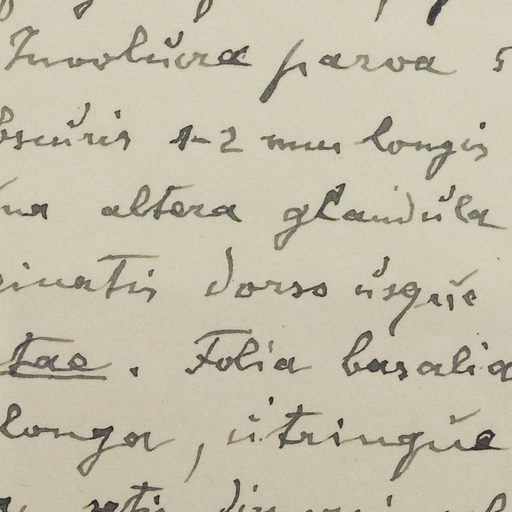 Involucra parva 5
bscuris 1-2 mm longis
na altera glandula
cinatis dorso usque
tae. Folia basalia
longa, utrinque